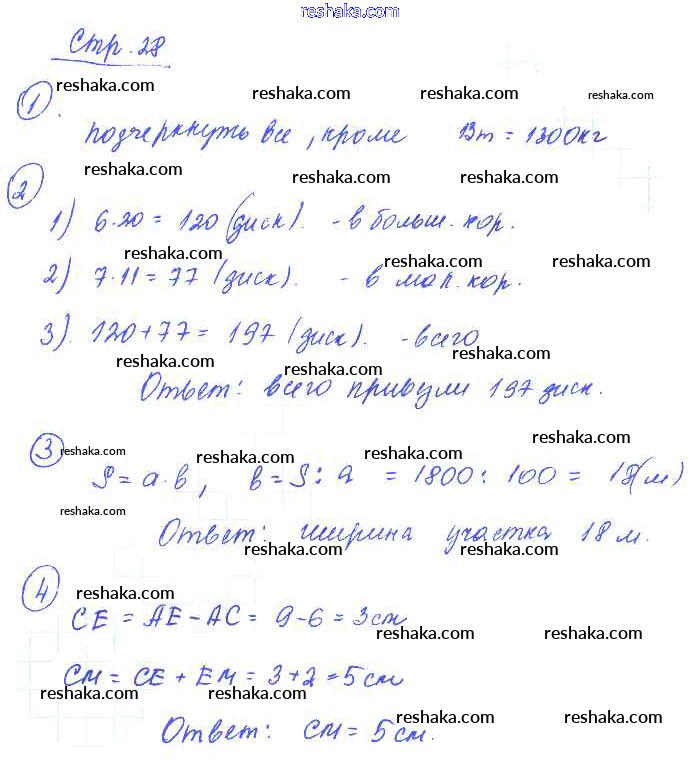 reshaka.com
Стр. 28
reshaka.com reshaka.com reshaka.com reshaka.com
1.
подчеркнуть все, кроме 13т = 1300кг
reshaka.com reshaka.com reshaka.com
2
1) 6·20 = 120 (диск). - в больш. кор.
reshaka.com reshaka.com reshaka.com
2) 7·11 = 77 (диск). - в мал. кор.
3). 120+77 = 197 (диск). - всего
reshaka.com reshaka.com reshaka.com
Ответ: всего 197 диск.
3 reshaka.com reshaka.com reshaka.com
S = a·b, b = S : a = 1800 : 100 = 18(м)
reshaka.com
Ответ: ширина участка 18 м.
reshaka.com reshaka.com reshaka.com
4 reshaka.com
CE = AE - AC = 9-6 = 3см
reshaka.com reshaka.com reshaka.com
CM = CE + EM = 3+2 = 5см
reshaka.com reshaka.com reshaka.com
Ответ: CM = 5см.
reshaka.com reshaka.com reshaka.com